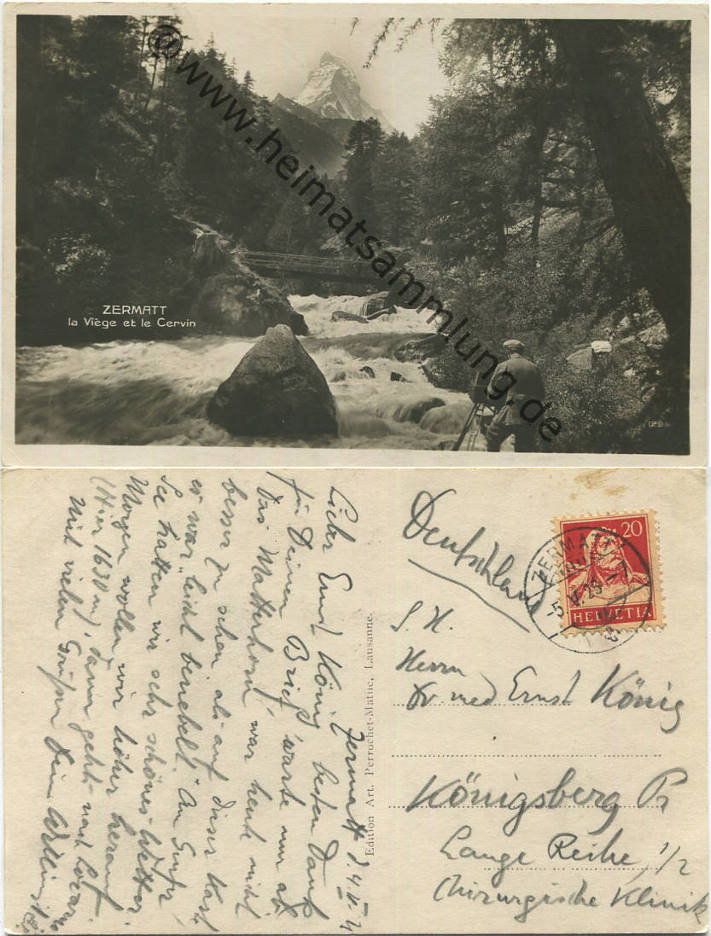 © www.heimatsammlung.de
ZERMATT
la Viège et le Cervin
Zermatt
Lieber Ernst König, besten Dank
für Deinen Brief, warte nun ab.
Das Matterhorn war heute nicht
besser zu sehen als auf dieser Karte
es war leicht benebelt. Am Genfer
See hatten wir sehr schönes Wetter.
Morgen wollen wir höher herauf
(Hier 1630 m), dann geht's nach Locarno
Mit vielen Grüßen Dein
Edition Art. Perrochet-Matile, Lausanne.
Deutschland
20
HELVETIA
ZERMATT
S. H.
Herrn
Dr. med Ernst König
Königsberg Pr
Lange Reihe 1/2
Chirurgische Klinik